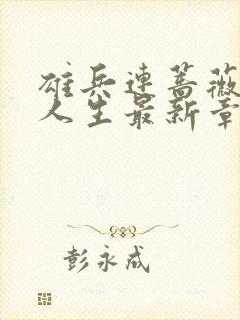 雄兵连蔷薇
人生最新章
彭永成